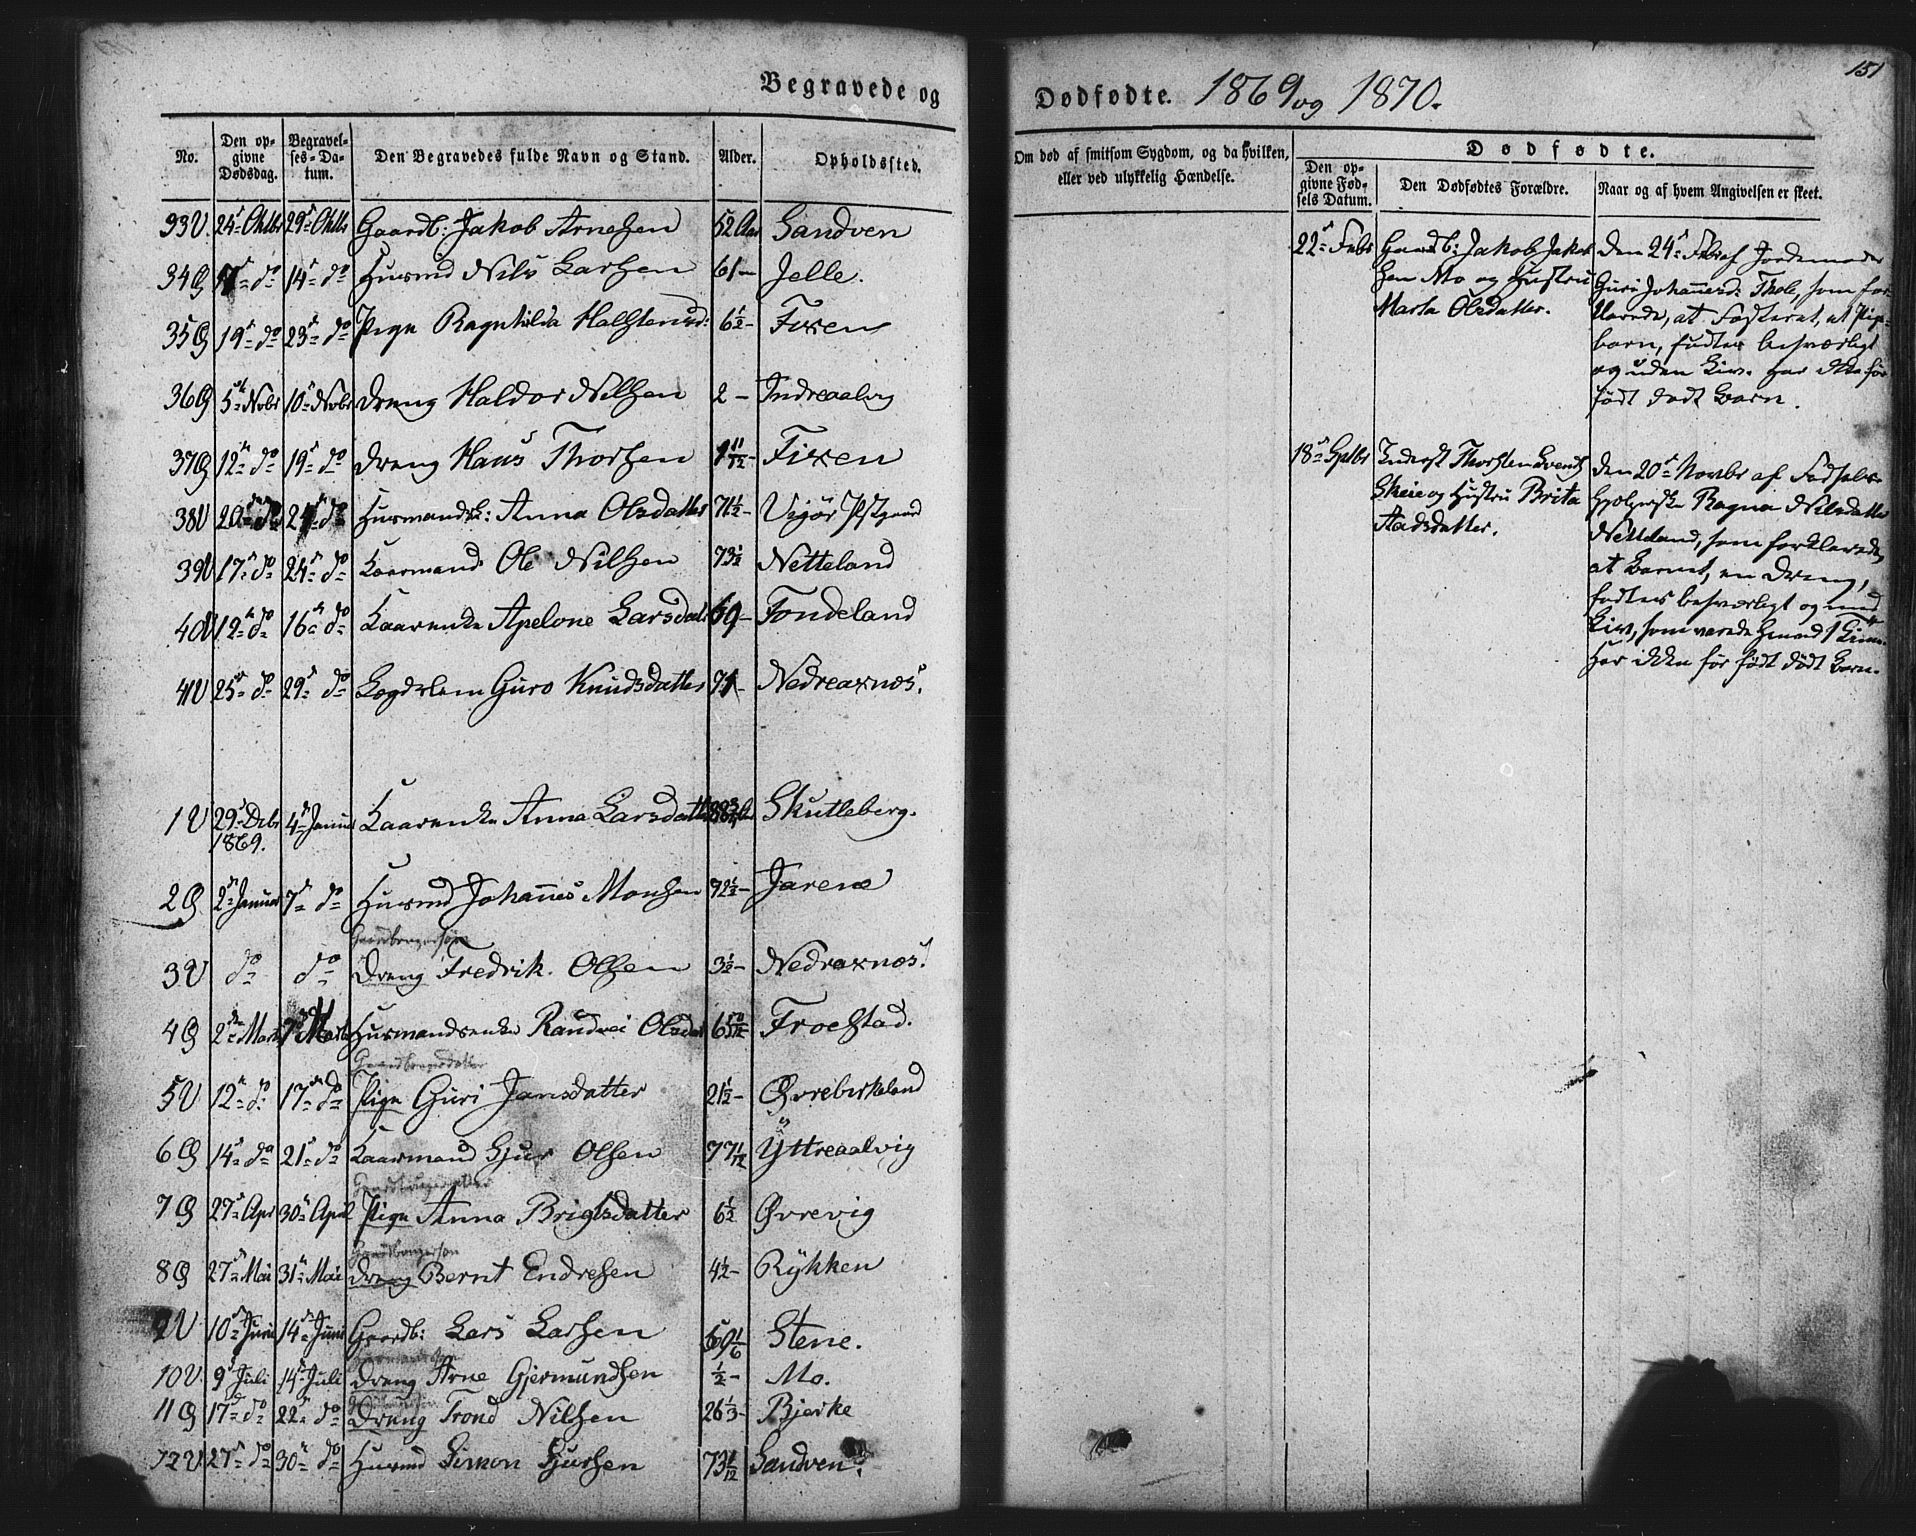 Begravede og
No.
Den opgivne Dødsdag.
Begravelses-Datum.
Den Begravedes fulde Navn og Stand.
Alder.
Opholdssted.
33 V. 24 Oktbr 29 Oktbr Gaardb: Jakob Arnesen 52 Aar Sandven
34 Q do 14 do Husmd Nils Larsen 61 – Jelle.
35 Q 19 do 23 do Pige Ragnhilda Halstensd: 6½ – Fixen
36 Q 5 Novbr 10 Novbr Dreng Haldor Nilsen 2 – Indreaalvig
37 Q 12 do 19 do Dreng Hans Thorsen 11/12 – Fixen
38 V 20 do 24 do Husmandsk: Anna Olsdatter 71½ – Vigør Pstgaard
39 V 17 do 24 do Kaarmand Ole Nilsen 73½ Netteland
40 V 12 do 16 do Kaarenke Apelone Larsdatr 69 – Tondeland
41 V 25 do 29 do Lægdslem Guro Knudsdatter 71 – Nedreaxnes.
1 V 29 Dcbr 4 Januar Kaarenke Anna Larsdatter Skutleberg.
1869.
2 Q 2 Januar 7 do Husmd Johannes Monsen 72½ – Jarene
Gaardbrugersøn
3 V do do Dreng Fredrik Olsen 3½ – Nedreaxnes.
4 Q 2 Marts 7 Marts Husmandsenke Randvei Olsdatr 65 10/12 Froestad.
Gaardbrugerdatter
5 V 12 do 17 do Pige Guri Jansdatter 21½ – Øvrebirkeland
6 Q 14 do 21 do Kaarmand Gjur Olsen 77 1/12 Yttreaalvig
Gaardbrugerdatter
7 Q 27 Apr 30 April Pige Anna Brigtsdatter 6½ Øvrevig
Gaardbrugersøn
8 Q 27 Mai 31 Mai Dreng Bernt Endresen 4½ – Rykken
9 V 10 Juni 14 Juni Gaardb: Lars Larsen 69 1/6 Stene.
10 V 9 Juli 14 Juli Dreng Arne Gjermundsen ½ – Mo.
11 Q 17 do 22 do Dreng Trond Nilsen 26⅓ – Bjerke
12 V 27 do 30 do Husmd Simon Gjursen 73 1/12 Sandven.
151
Dødfødte. 1869 og 1870.
Om død af smitsom Sygdom, og da hvilken, eller ved ulykkelig Hændelse.
Dødfødte.
Den opgivne Fødsels Datum.
Den Dødfødtes Forældre.
Naar og af hvem Angivelsen er skeet.
22 Febr
Gaardb: Jakob Jakob
sen Mo og Hustru
Marta Olsdatter.
Den 24 Febr af Jordemoder
Guri Johannesd: Thole, som for
klarede, at Fosteret, et Pige-
barn, fødtes besværligt
og uden Liv. Har ikke før
født dødt Barn.
18 Sptbr
Inderst Thorsten Svends
Skeie og Hustru Brita
Aadsdatter.
Den 20 Novbr af Fødsels-
hjælperske Ragna Nilsdatter
Netteland, som forklarede,
at Barnet, en Dreng,
fødtes besværligt og med
Liv, som varede henved 1 Time.
Har ikke før født dødt Barn.